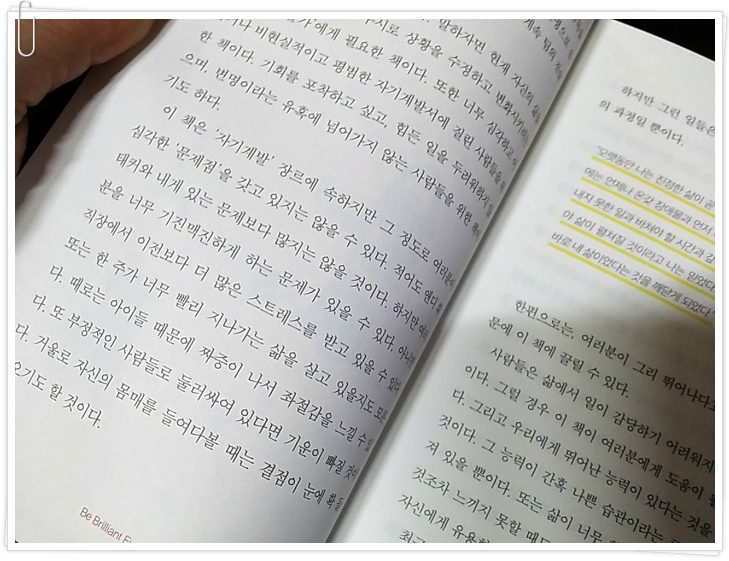 계속 범의
말하자면 현재 자신의 삶을
수시로 상황을 수정하고 변화시키려는
에게 필요한 책이다. 또한 너무 심각하고
나 비현실적이고 평범한 자기계발서에 질린 사람들을
한 책이다. 기회를 포착하고 싶고, 힘든 일을 두려워하지
으며, 변명이라는 유혹에 넘어가지 않는 사람들을 위한 책이
기도 하다.
이 책은 '자기계발' 장르에 속하지만 그 정도로 여러분이
심각한 '문제점'을 갖고 있지는 않을 수 있다. 적어도 앤디
태커와 내게 있는 문제보다 많지는 않을 것이다. 하지만
분을 너무 기진맥진하게 하는 문제가 있을 수 있다. 아니면
직장에서 이전보다 더 많은 스트레스를 받고 있을 수 있다
또는 한 주가 너무 빨리 지나가는 삶을 살고 있을지도 모른
다. 때로는 아이들 때문에 짜증이 나서 좌절감을 느낄 수
다. 또 부정적인 사람들로 둘러싸여 있다면 기운이 빠질 것이
다. 거울로 자신의 몸매를 들여다볼 때는 결점이 눈에 확
오기도 할 것이다.
Be Brilliant
하지만 그런 일들은
의 과정일 뿐이다.
"오랫동안 나는 진정한 삶이 곧
에는 언제나 온갖 장애물과 먼저
내지 못한 일과 바쳐야 할 시간과 갚
야 삶이 펼쳐질 것이라고 나는 믿었다
바로 내 삶이었다는 것을 깨닫게 되었다."
한편으로는, 여러분이 그리 뛰어나다고
문에 이 책에 끌릴 수 있다.
사람들은 삶에서 일이 감당하기 어려워지
이다. 그럴 경우 이 책이 여러분에게 도움이 될
다. 그리고 우리에게 뛰어난 능력이 있다는 것을
것이다. 그 능력이 간혹 나쁜 습관이라는
져 있을 뿐이다. 또는 삶이 너무
것조차 느끼지 못할 때도
자신에게 유용한
최근